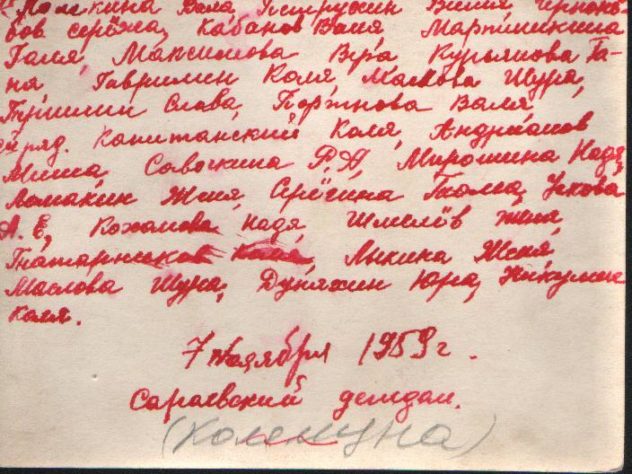 кина Валя, Петрушин Витя,
вов Серёжа, Кабанов Ваня, Мартишкина
Галя, Максимова Вера, Курьянова Га-
ля, Гаврилин Коля, Маслова Шура,
Слава, Портнова Валя
ряд. Капитанский Коля, Андрианов
Миша, Савочкина Р.А, Мирошина Надя,
Ломакин Женя, Серёгина Тома, Ускова
А.Е, Кожанова Надя, Шмелёв Женя,
Лыкина Женя,
Маслова Шура, Дуняхин Юра, Никулин
Коля.
7 ноября 1959 г.
Сараевский детдом.
(Коммуна)